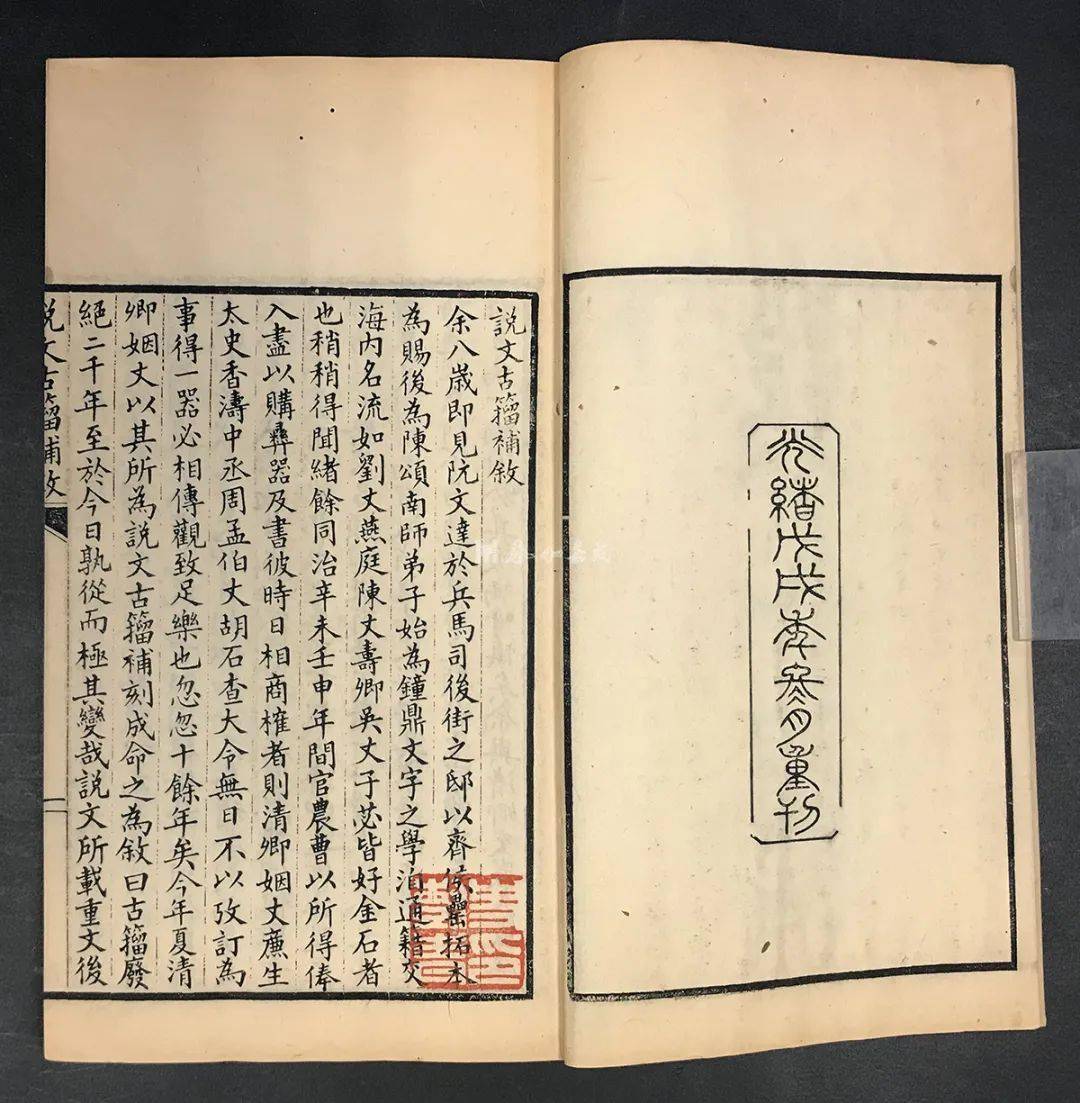 光緒戊戌年叄月重刊
說文古籀補敘
余八歲即見阮文達於兵馬司後街之邸以齊侯罍拓本
為賜後為陳頌南師弟子始為鐘鼎文字之學洎通籍交
海內名流如劉丈燕庭陳丈壽卿吳丈子苾皆好金石者
也稍稍得聞緒餘同治辛未壬申年間官農曹以所得俸
入盡以購彝器及書彼時日相商榷者則清卿姻丈廉生
太史香濤中丞周孟伯丈胡石查大令無日不以攷訂為
事得一器必相傳觀致足樂也忽忽十餘年矣今年夏清
卿姻丈以其所為說文古籀補刻成命之為敘曰古籀廢
絕二千年至於今日孰從而極其變哉說文所載重文後
說文古籀補敘